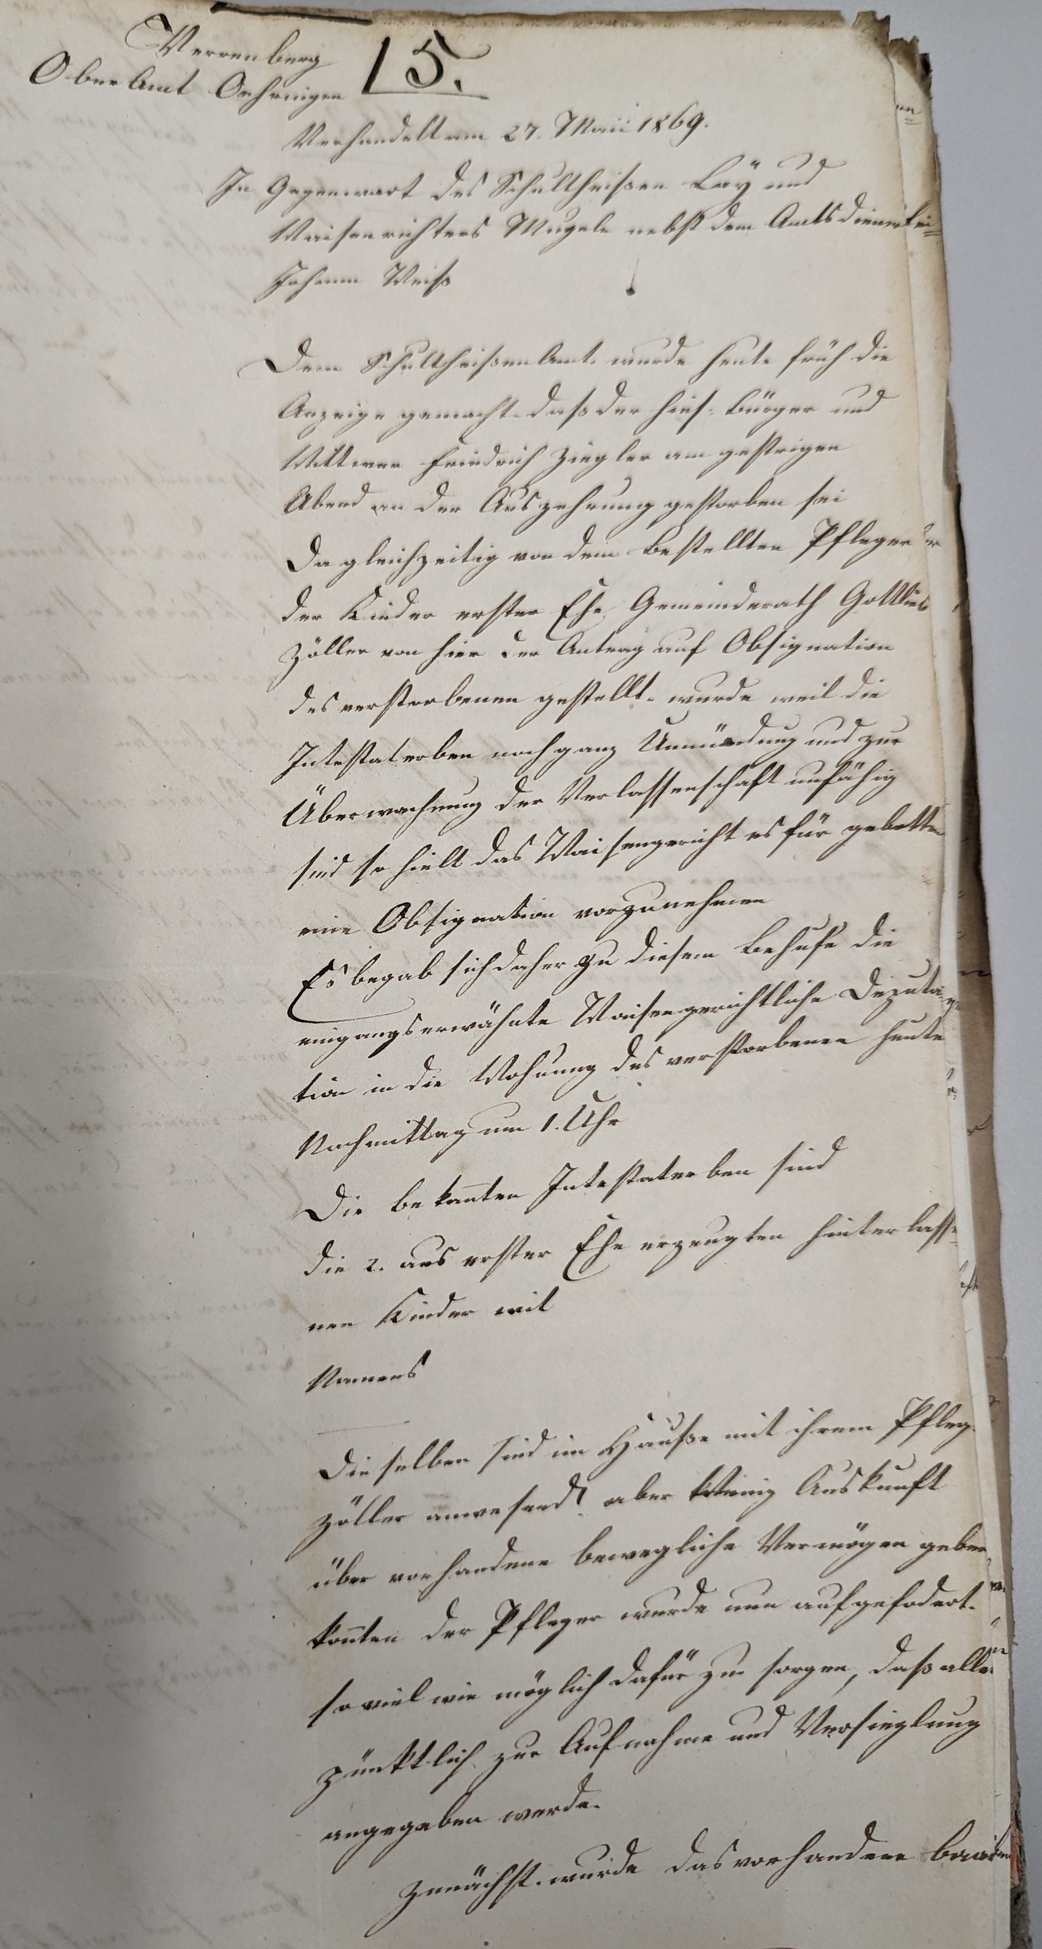 Verrenberg
OberAmt Oehringen
15.
Verhandelt am 27. Mai 1869.
In Gegenwart des Schultheißen Läÿ und
Waisenrichters Mugele nebst dem Amtsdiener
Johann Weiß
Dem SchultheißenAmt. wurde heute früh die
Anzeige gemacht daß der hies. Bürger und
Wittwer Friedrich Ziegler am gestrigen
Abend an der Auszehrung gestorben sei
Da gleichzeitig von dem bestellten Pfleger
der Kinder erster Ehe Gemeinderath Gottlieb
Zöller von hier der Antrag auf Obsignation
des verstorbenen gestellt. wurde weil die
Intestaterben noch ganz Unmündung und zur
Überwachung der Verlassenschaft unfähig
sind so hielt das Waisengericht es für gebotten
eine Obsignation vorzunehmen
Es begab sich daher zu diesem Behufe die
eingangserwähnte Waisengerichtliche Deputa-
tion in die Wohnung des verstorbenen heute
Nachmittag um 1. Uhr
Die bekannten Intestaterben sind
die 2. aus erster Ehe erzeugten hinterlasse-
nen Kinder mit
Namens
Dieselben sind im Hauße mit ihrem Pfleg.
Zöller anwesend aber wenig Auskunft
über vorhandene bewegliche Vermögen geben
konnten der Pfleger wurde nun aufgefodert.
so viel wie möglich dafür zu sorgen, daß alles
pünktlich zur Aufnahme und Versieglung
angegeben werde.
Zunächst. wurde das vorhandene baare